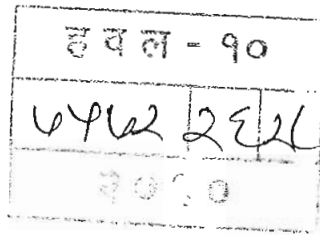 हवल - १०
७५७२ २६ २८
२०१०